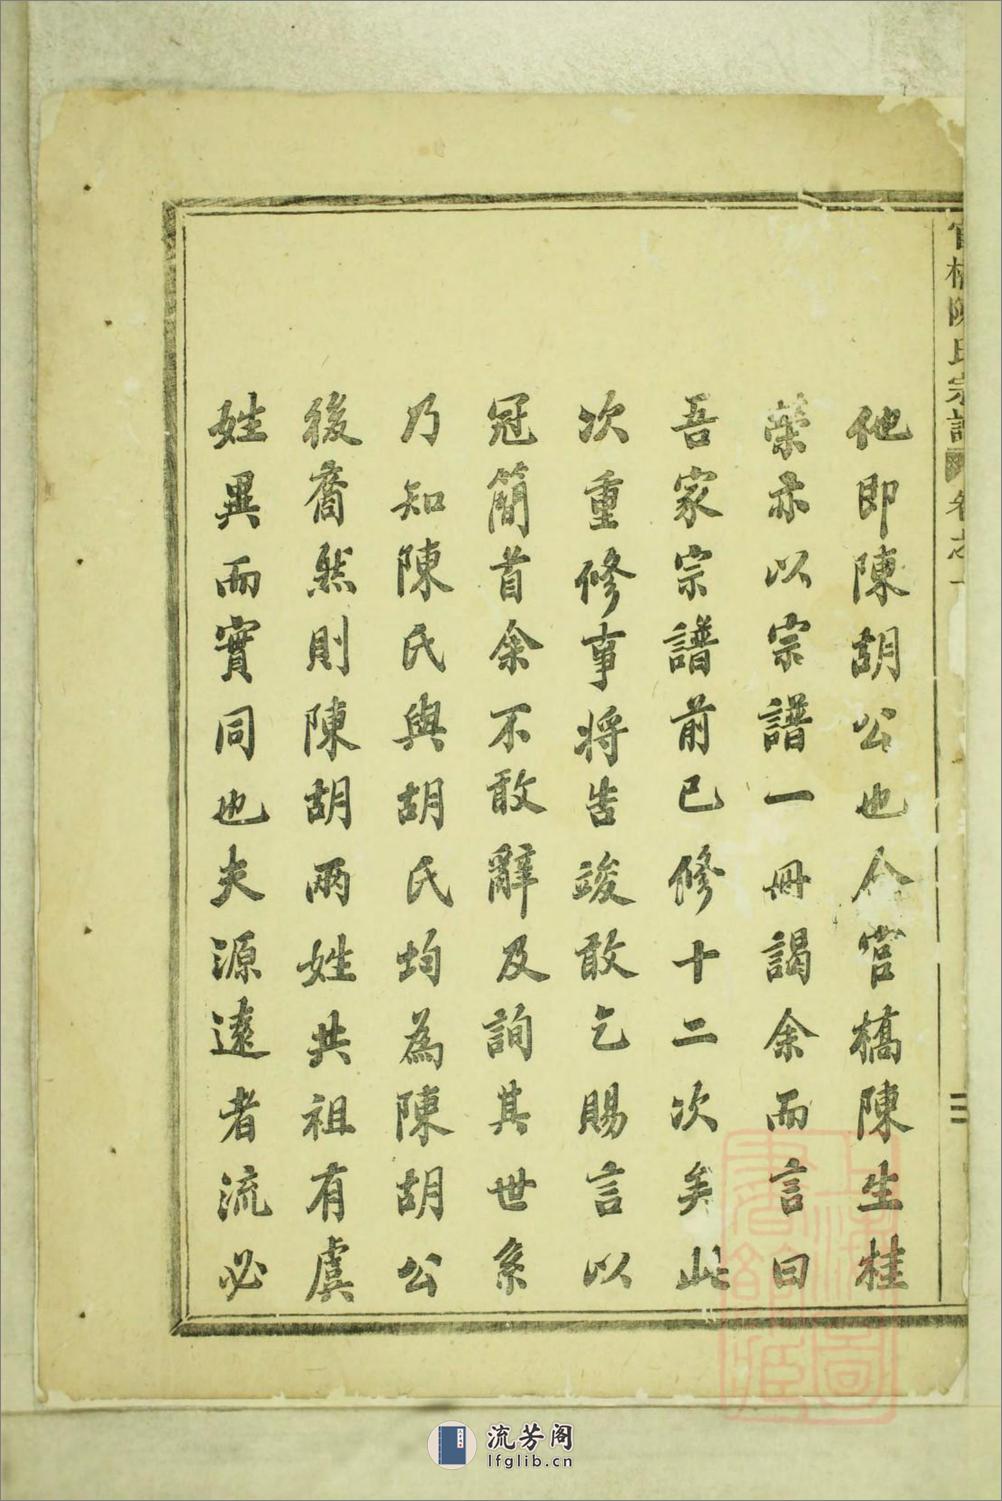 陳氏宗譜 卷之一
三
他即陳胡公也今官橋陳生桂
榮亦以宗譜一冊謁余而言曰
吾家宗譜前已修十二次矣此
次重修事將告竣敢乞賜言以
冠簡首余不敢辭及詢其世系
乃知陳氏與胡氏均為陳胡公
後裔然則陳胡兩姓共祖有虞
姓異而實同也夫源遠者流必
流芳阁
lfglib.cn